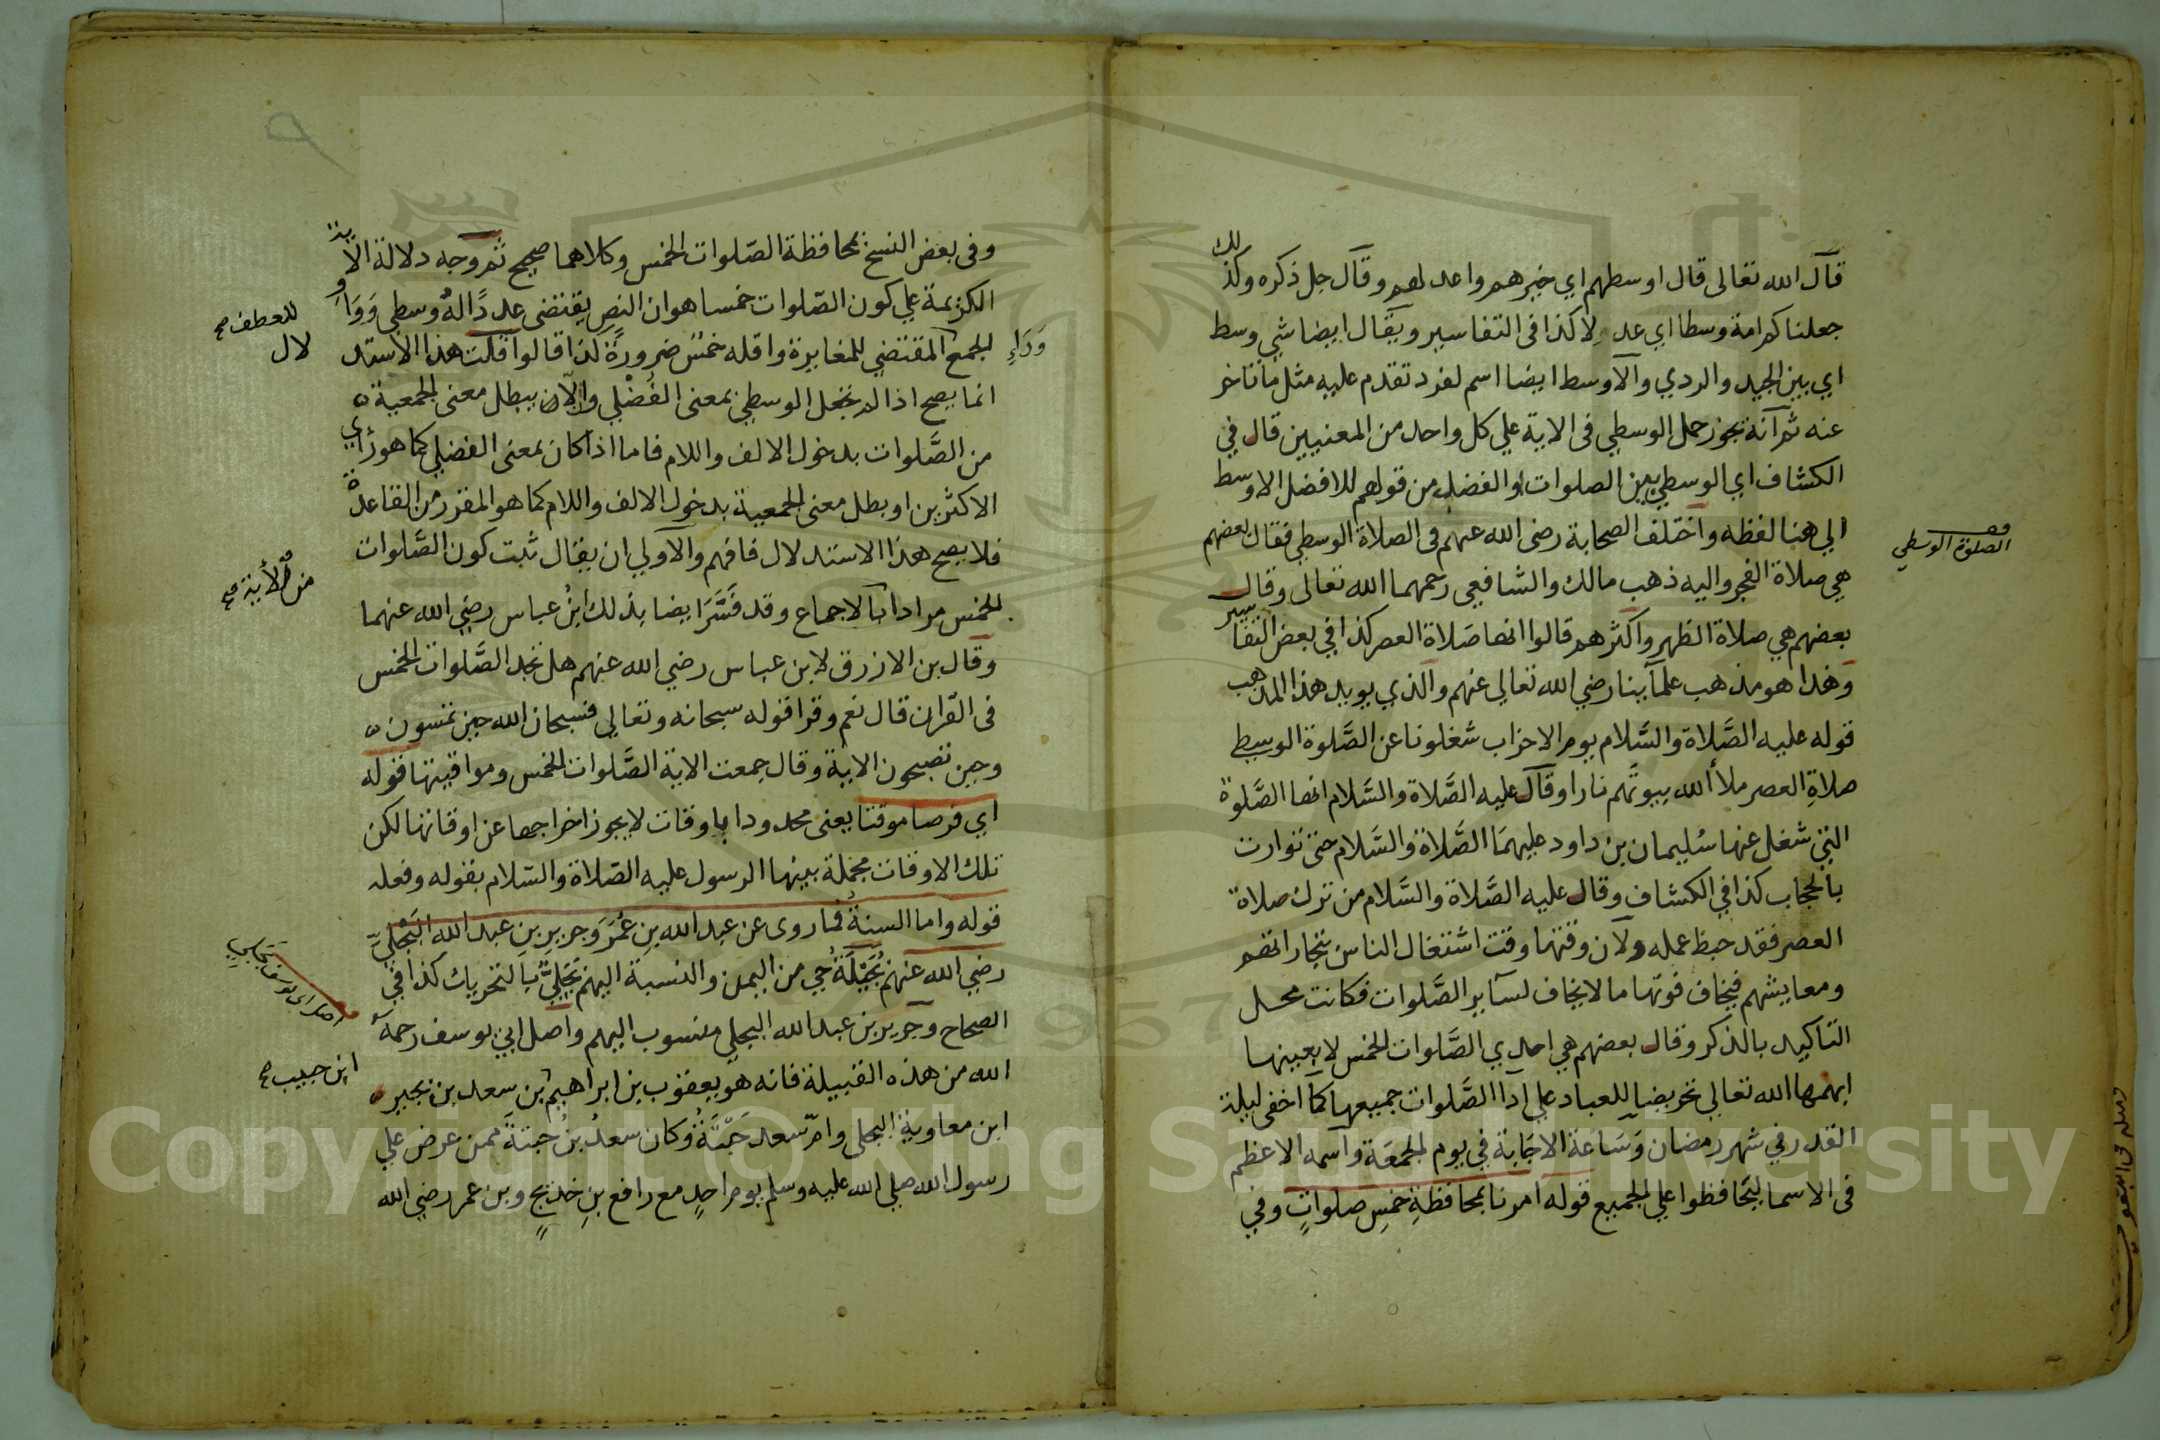 قال الله تعالى قال اوسطهم اي خيرهم واعدلهم وقال جل ذكره وكذلك
جعلناكم امة وسطا اي عدولا كذا في التفاسير ويقال ايضا شي وسط
اي بين الجيد والردي والاوسط ايضا اسم لفرد تقدم عليه مثل ما تاخر
عنه ثم انه يجوز حمل الوسطي في الاية علي كل واحد من المعنيين قال في
الكشاف اي الوسطي بين الصلوات او الفضلي من قولهم للافضل الاوسط
الي هنا لفظه واختلف الصحابة رضى الله عنهم في الصلاة الوسطي فقال بعضهم
هي صلاة الفجر واليه ذهب مالك والشافعي رحمهما الله تعالى وقال
بعضهم هي صلاة الظهر واكثرهم قالوا انها صلاة العصر كذا في بعض التفاسير
وهذا هو مذهب علمآينا رضي الله تعالي عنهم والذي يويد هذا المذهب
قوله عليه الصَّلاة والسَّلام يوم الاحزاب شغلونا عن الصَّلوة الوسطي
صلاةِ العصر ملأ الله بيوتهم نارا وقال عليه الصَّلاة والسَّلام انها الصَّلوة
التي شغل عنها سُليمان بن داود عليهمَا الصَّلاة والسَّلام حتى توارت
بالحجاب كذا في الكشاف وقال عليه الصَّلاة والسَّلام من ترك صلاة
العصر فقد حبط عمله ولان وقتها وقت اشتغال الناس بتجاراتهم
ومعايشهم فيخاف فوتها ما لا يخاف لسآير الصَّلوات فكانت محل
التاكيد بالذكر وقال بعضهم هي احدي الصَّلوات الخمس لا بعينها
ابهمها الله تعالي تحريضا للعباد علي ادا الصَّلوات جميعها كما اخفى ليلة
القدر في شهر رمضان وَسَاعة الاجَابة في يوم الجمعَة واسمه الاعظم
فى الاسما ليحافظوا علي الجميع قوله امرنا بمحافظةِ خمسِ صلواتٍ وفي
الصلوة الوسطي
وفى بعض النسخ بمحافظة الصّلوات الخمس وكلاهما صحيح ثم وجه دلالة الاية
الكريمة علي كون الصّلوات خمسا هو ان النص يقتضى عددًا له وسطى وَوَاو
للعطف صح
الجمع المقتضي للمغايرة واقله خمس ضرورة كذا قالوا قلت هذا الاستد
وَرَاءِ
لال
انما يصح اذا لم نجعل الوسطي بمعنى الفُضْلي والان يبطل معنى الجمعية
من الصَّلوات بدخول الالف واللام فاما اذا كان بمعنى الفضلي كما هو رأي
الاكثرين او بطل معنى الجمعية بدخول الالف واللام كما هو المقرر من القاعدة
فلا يصح هذا الاستدلال فافهم والاولي ان يقال ثبت كون الصَّلوات
الخمس مرادا بالاجماع وقد فَسَّرَ ايضا بذلك ابنُ عباس رضي الله عنهما
وقال بن الازرق لابن عباس رضي الله عنهم هل نجد الصَّلوات الخمس
في القران قال نعم وقرا قوله سبحانه وتعالي فسبحان الله حين تمسون
وحين تصبحون الاية وقال جمعت الاية الصَّلوات الخمس ومواقيتها قوله
اي فرضا موقتا يعنى محدودا باوقات لا يجوز اخراجها عن اوقاتها لكن
تلك الاوقات مجملة بينها الرسول عليه الصّلاة والسّلام بقوله وفعله
قوله واما السنةُ فما روى عن عبد الله بنِ عُمَرَ وجريرِ بنِ عبد الله البَجَليّ
رضي الله عنهم بُجَيْلَةُ حي من اليمن والنسبة اليهم بَجَليٌّ بالتحريك كذا في
الصحاح وجرير بن عبد الله البجلي منسوب اليهم واصل ابي يوسف رحمه
الله من هذه القبيلة فانه هو يعقوب بن ابراهيم بن سعد بن بجير
ابن حبيب صح
ابن معاوية البجلى وامّ سعد حَبْتَةُ وكان سعدُ بنُ حبتةَ ممن عرض علي
رسول الله صلي الله عليه وسلم يوم احدٍ مع رافع بنِ خديجٍ وبن عمر رضي الله